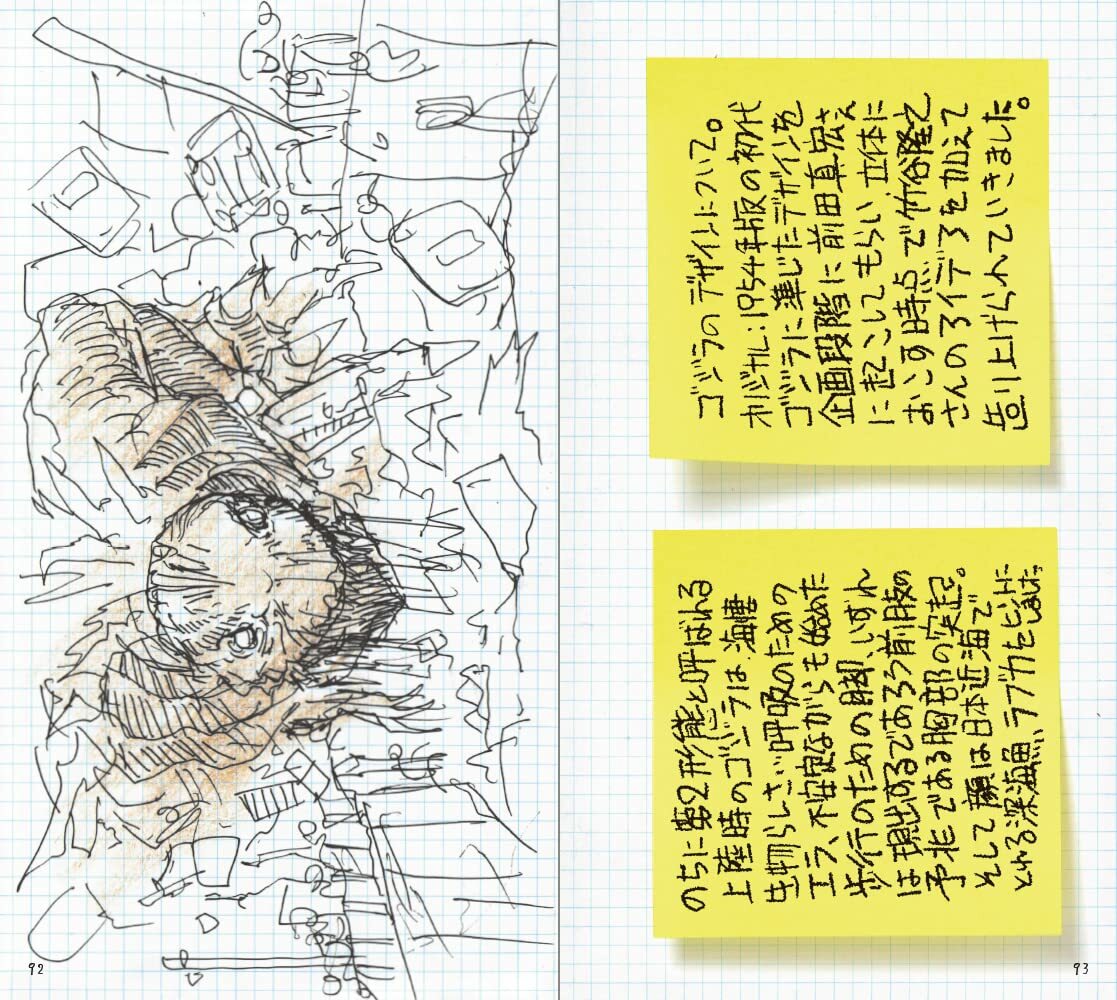 ゴジラのデザインについて。
オリジナル:1954年版の初代
ゴジラに準じたデザインを
企画段階に前田真宏さん
に起こしてもらい、立体に
おこす時点で竹谷隆之
さんのアイデアを加えて
造り上げられていきました。
のちに第2形態と呼ばれる
上陸時のゴジラは、海棲
生物らしさ、呼吸のための
エラ、不安定ながらも始めた
歩行のための脚、いずれ
は現出するであろう前肢の
予兆である胸部の突起。
そして顔は日本近海で
とれる深海魚、ラブカをヒントに
しました。
92
93